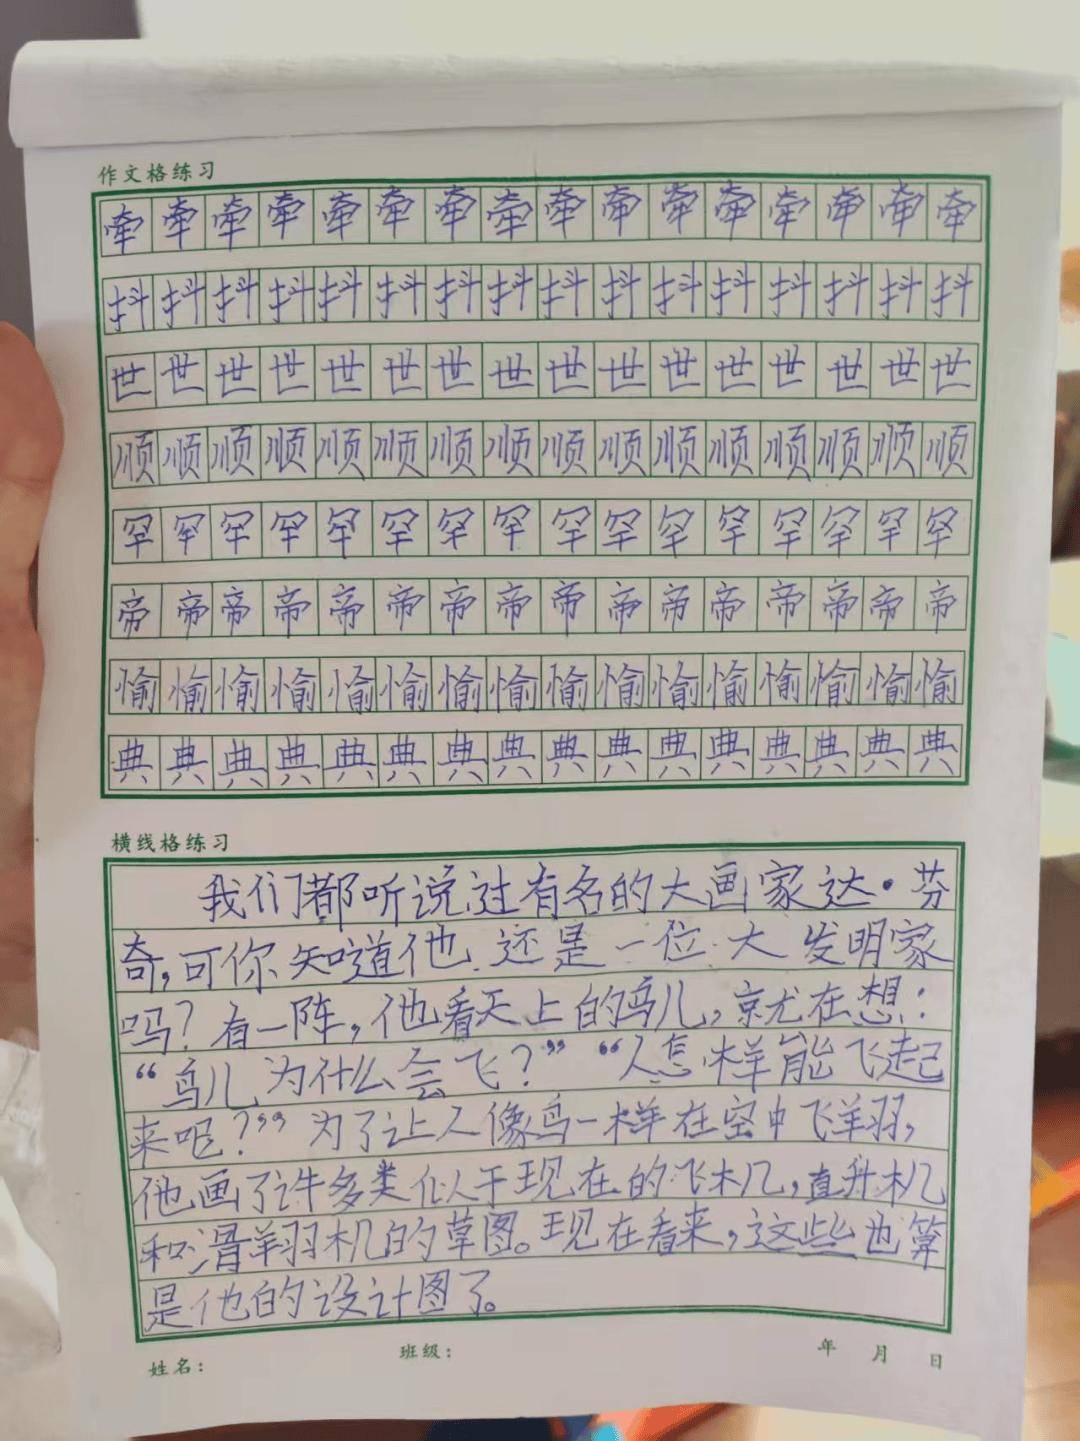 作文格练习
牵牵牵牵牵牵牵牵牵牵牵牵牵牵牵牵
抖抖抖抖抖抖抖抖抖抖抖抖抖抖抖抖
世世世世世世世世世世世世世世世世
顺顺顺顺顺顺顺顺顺顺顺顺顺顺顺顺
罕罕罕罕罕罕罕罕罕罕罕罕罕罕罕罕
帝帝帝帝帝帝帝帝帝帝帝帝帝帝帝帝
愉愉愉愉愉愉愉愉愉愉愉愉愉愉愉愉
典典典典典典典典典典典典典典典典
横线格练习
我们都听说过有名的大画家达·芬
奇,可你知道他还是一位大发明家
吗?有一阵,他看天上的鸟儿,就在想:
“鸟儿为什么会飞?”“人怎样能飞起
来呢?”为了让人像鸟一样在空中飞翔,
他画了许多类似于现在的飞机,直升机
和滑翔机的草图。现在看来,这些也算
是他的设计图了。
姓名: 班级: 年 月 日